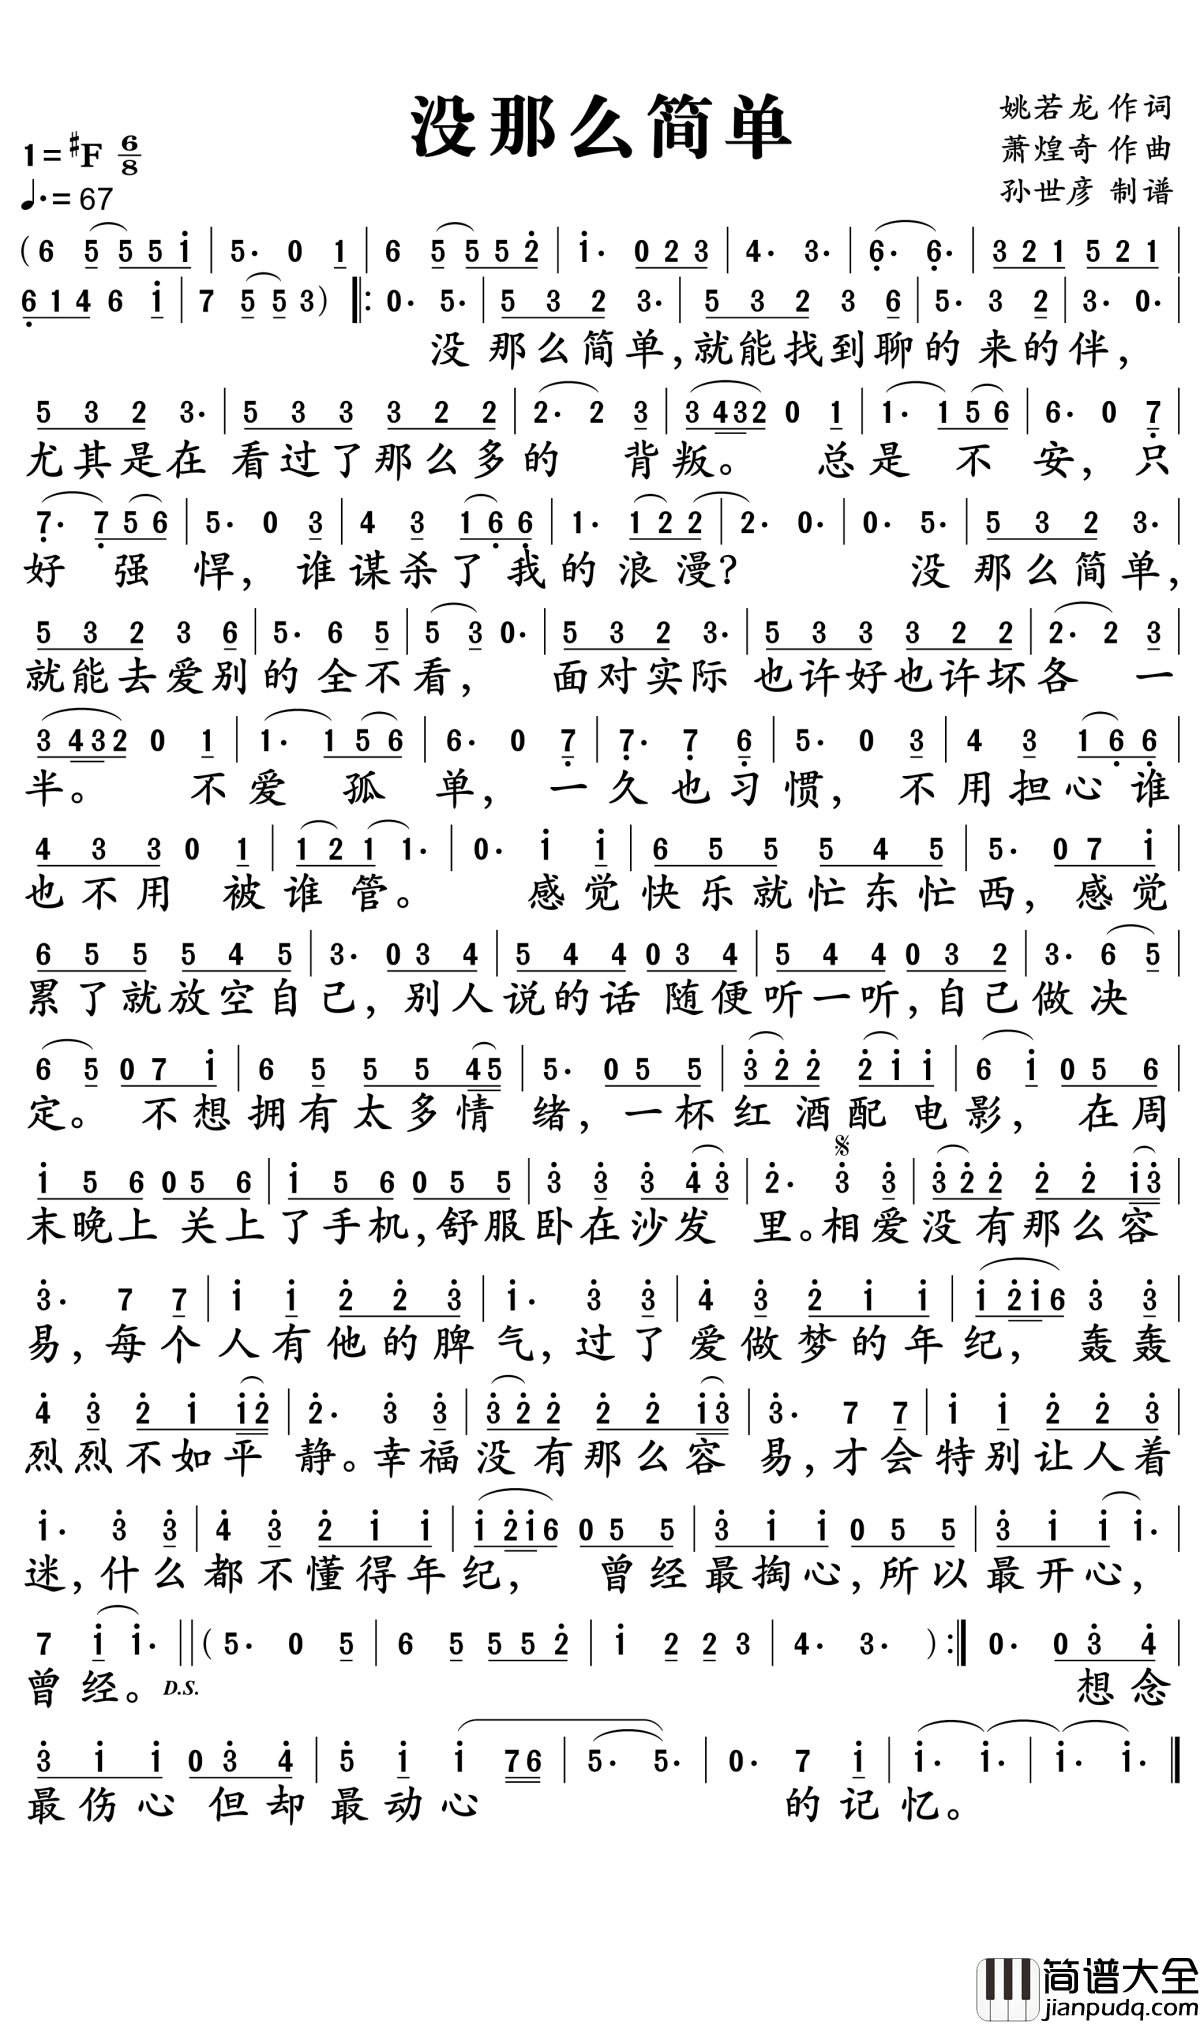 没那么简单
姚若龙 作词
萧煌奇 作曲
孙世彦 制谱
1=♯F 6/8
♩.=67
(6 5 5 5 i | 5. 0 1 | 6 5 5 5 2 | i. 0 2 3 | 4. 3. | 6. 6. | 3 2 1 5 2 1 |
6 1 4 6 i | 7 5 5 3) |: 0. 5. | 5 3 2 3. | 5 3 2 3 6 | 5. 3 2 | 3. 0. |
没 那么简单,就能找到聊的 来的伴,
5 3 2 3. | 5 3 3 3 2 2 | 2. 2 3 | 3 4 3 2 0 1 | 1. 1 5 6 | 6. 0 7 |
尤其是在 看过了那么多的 背叛。 总是 不 安, 只
7. 7 5 6 | 5. 0 3 | 4 3 1 6 6 | 1. 1 2 2 | 2. 0. | 0. 5. | 5 3 2 3. |
好 强 悍, 谁谋杀了我的浪漫? 没 那么简单,
5 3 2 3 6 | 5. 6 5 | 5 3 0. | 5 3 2 3. | 5 3 3 3 2 2 | 2. 2 3 |
就能去爱别的全不看, 面对实际 也许好也许坏各 一
3 4 3 2 0 1 | 1. 1 5 6 | 6. 0 7 | 7. 7 6 | 5. 0 3 | 4 3 1 6 6 |
半。 不爱 孤 单, 一久也习惯, 不用担心谁
4 3 3 0 1 | 1 2 1 1. | 0. i i | 6 5 5 5 4 5 | 5. 0 7 i |
也不用 被谁管。 感觉快乐就忙东忙西, 感觉
6 5 5 5 4 5 | 3. 0 3 4 | 5 4 4 0 3 4 | 5 4 4 0 3 2 | 3. 6 5 |
累了就放空自己, 别人说的话 随便听一听,自己做决
6 5 0 7 i | 6 5 5 5 4 5 | 5. 0 5 5 | 3 2 2 2 i i | 6 i 0 5 6 |
定。 不想拥有太多情 绪, 一杯红酒配电影, 在周
i 5 6 0 5 6 | i 5 6 0 5 5 | 3 3 3 4 3 | 2. 𝄋 3 3 | 3 2 2 2 2 i 3 |
末晚上 关上了手机,舒服卧在沙发 里。相爱没有那么容
3. 7 7 | i i 2 2 3 | i. 3 3 | 4 3 2 i i | i 2 i 6 3 3 |
易,每个人有他的脾气,过了爱做梦的年纪, 轰轰
4 3 2 i i 2 | 2. 3 3 | 3 2 2 2 2 i 3 | 3. 7 7 | i i 2 2 3 |
烈烈不如平 静。幸福没有那么容 易,才会特别让人着
i. 3 3 | 4 3 2 i i | i 2 i 6 0 5 5 | 3 i i 0 5 5 | 3 i i i. |
迷,什么都不懂得年纪, 曾经最掏心,所以最开心,
7 i i. || (5. 0 5 | 6 5 5 5 2 | i 2 2 3 | 4. 3. ) :| 0. 0 3 4 |
曾经。 D.S. 想念
3 i i 0 3 4 | 5 i i 7 6 | 5. 5. | 0. 7 i | i. i. | i. i. ||
最伤心 但却最动心 的记忆。
简谱大全
jianpudq.com